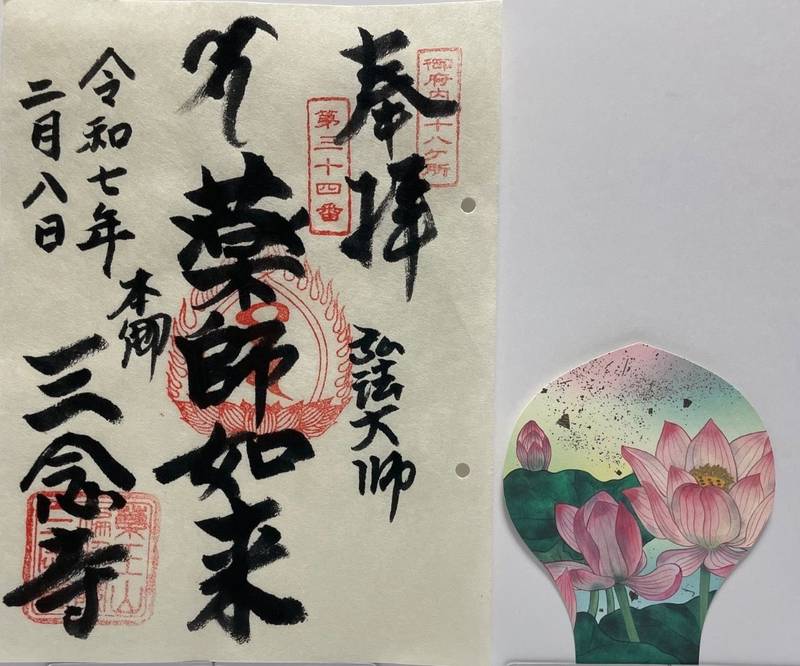 御府内八十八ケ所
奉拝
弘法大師
第三十四番
薬師如来
令和七年
二月八日
本郷
三念寺
藥王山